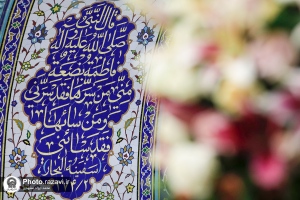 قال النبی
صلی الله علیه وآله
فاطمة بضعة
منی من سرها فقد سرنی
ومن ساءها
فقد ساءنی
Photo.razavi.ir